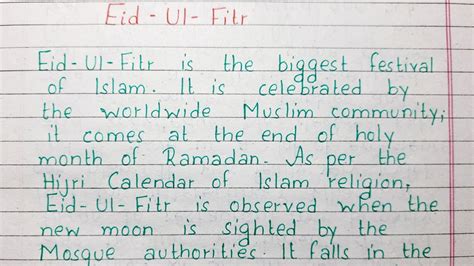 Eid-Ul-Fitr
Eid-Ul-Fitr is the biggest festival
of Islam. It is celebrated by
the worldwide Muslim community;
it comes at the end of holy
month of Ramadan. As per the
Hijri Calendar of Islam religion,
Eid-Ul-Fitr is observed when the
new moon is sighted by the
Mosque authorities. It falls in the